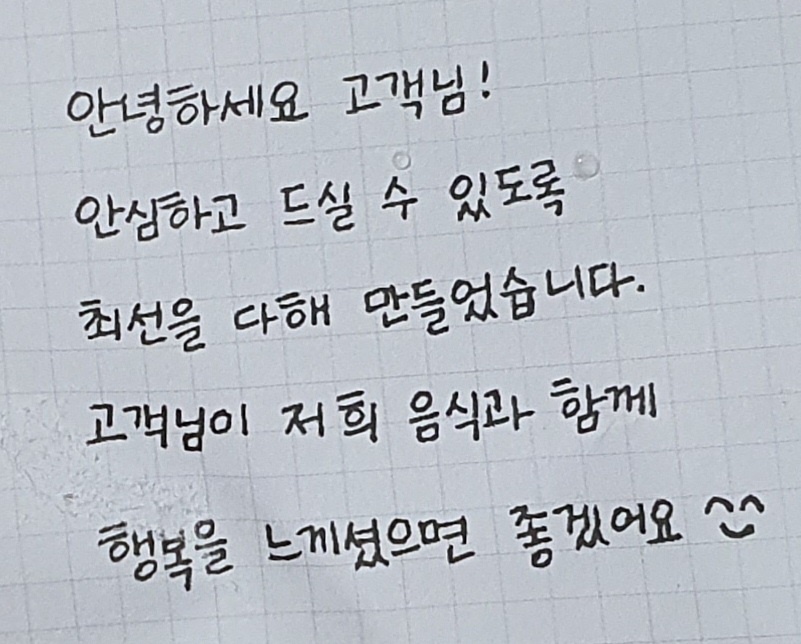 안녕하세요 고객님!
안심하고 드실 수 있도록
최선을 다해 만들었습니다.
고객님이 저희 음식과 함께
행복을 느끼셨으면 좋겠어요 ^^